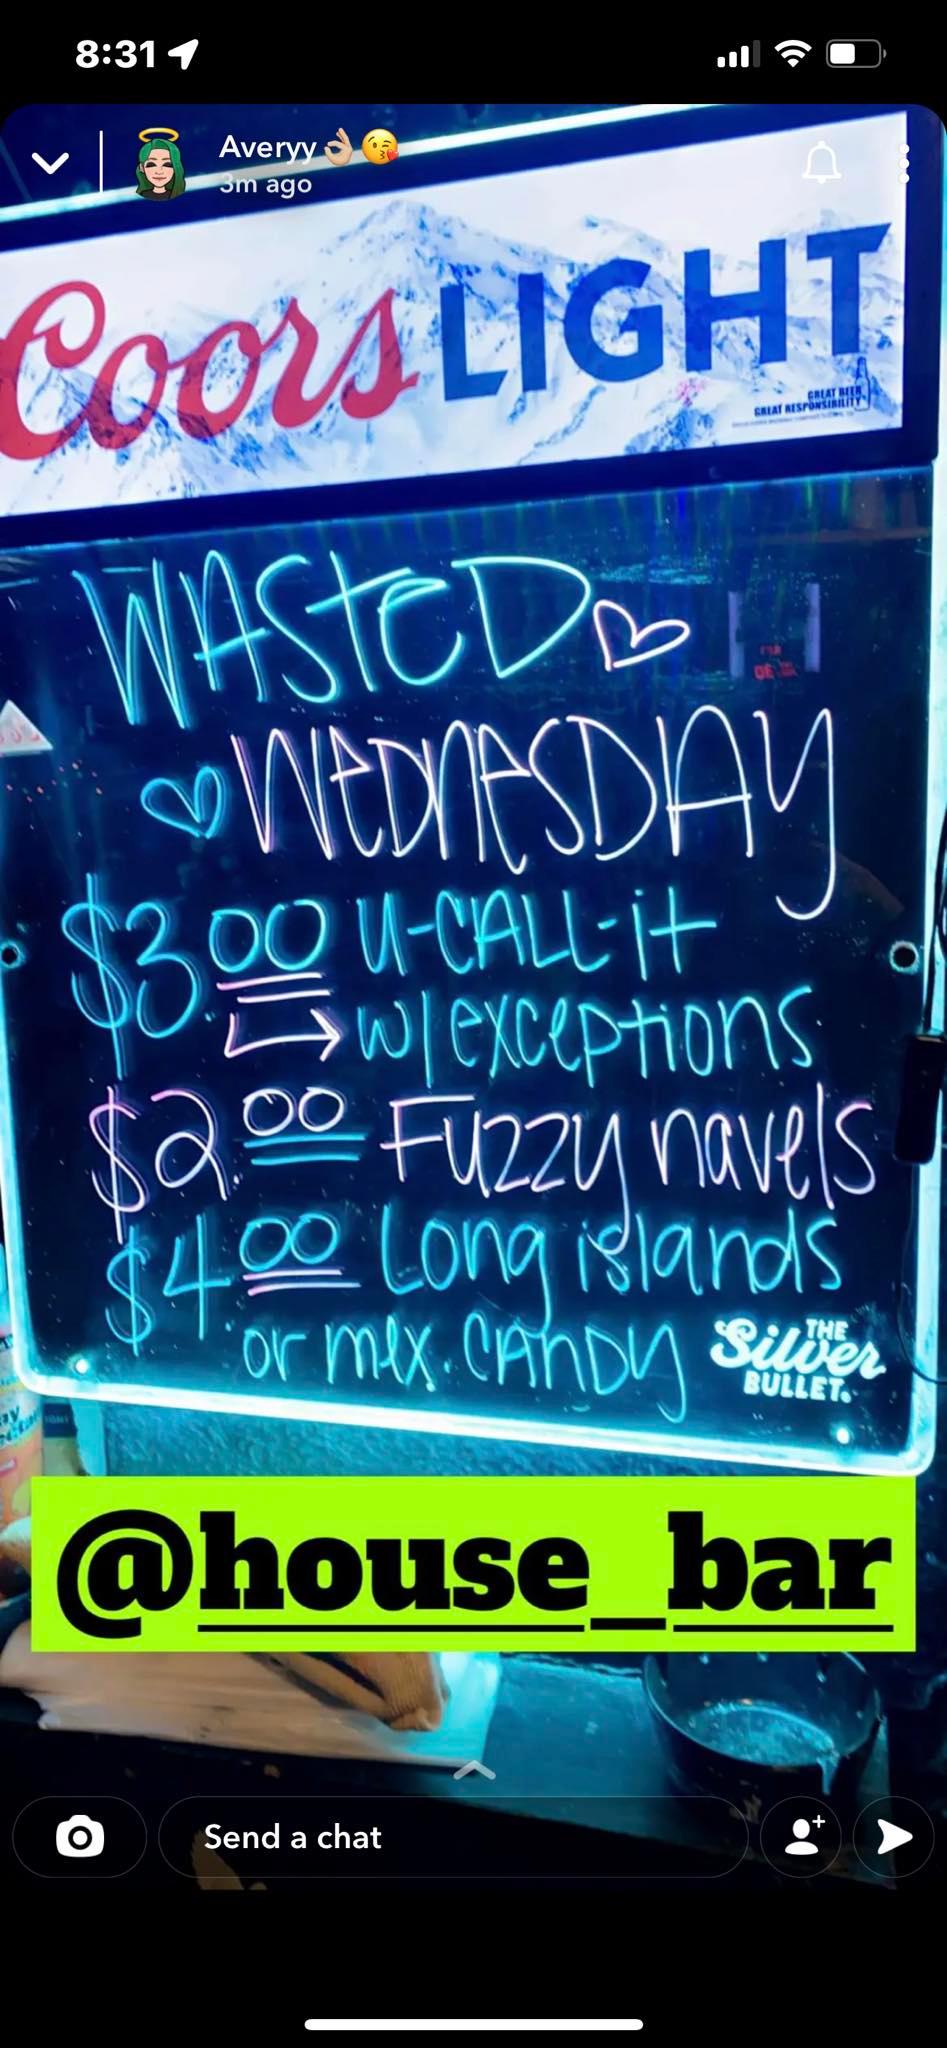 8:31
Averyy👌🏼😘
3m ago
Coors LIGHT
GREAT BEER
GREAT RESPONSIBILITY
WASteD
WeDNesDAY
$3.00 U-CALL-it
w/exceptions
$2.00 Fuzzy navels
$4.00 Long islands
or mex. CANDY
THE
Silver
BULLET.
@house_bar
Send a chat